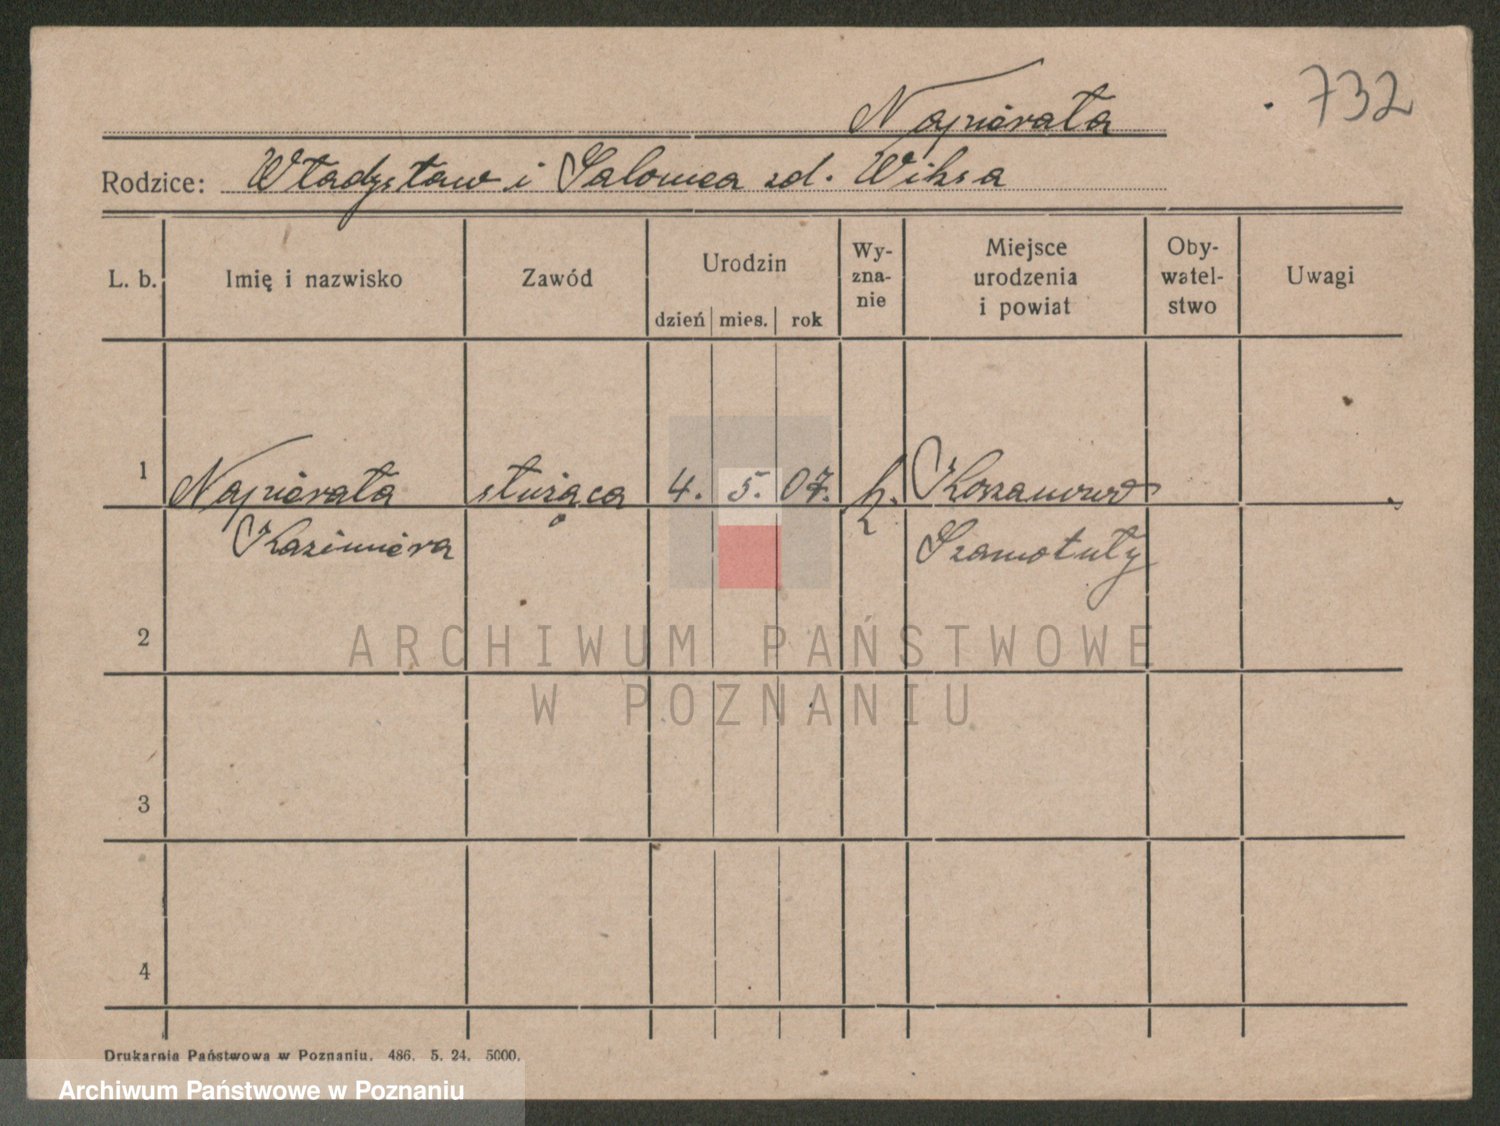 732
Napierała
Rodzice: Władysław i Salomea zd. Wiksa
L. b. Imię i nazwisko Zawód Urodzin dzień mies. rok Wy-zna-nie Miejsce urodzenia i powiat Oby-watel-stwo Uwagi
1 Napierała służąca 4. 5. 07. k. Koszanowo
Kazimiera Szamotuły
2
ARCHIWUM PAŃSTWOWE
W POZNANIU
3
4
Drukarnia Państwowa w Poznaniu. 486. 5. 24. 5000.
Archiwum Państwowe w Poznaniu